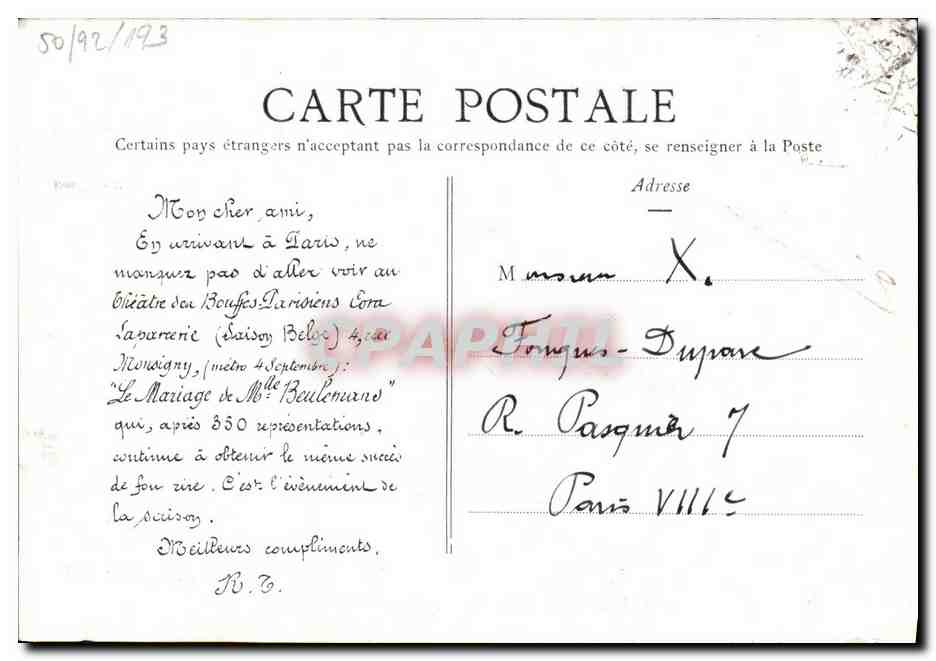 50/92/193
CARTE POSTALE
Certains pays étrangers n'acceptant pas la correspondance de ce côté, se renseigner à la Poste
Mon cher ami,
En arrivant à Paris, ne
manquez pas d'aller voir au
Théâtre des Bouffes-Parisiens Cora
Laparcerie (Saison Belge) 4, rue
Monsigny, (métro 4 Septembre):
"Le Mariage de Mlle Beulemans"
qui, après 350 représentations,
continue à obtenir le même succès
de fou rire. C'est l'évènement de
la saison.
Meilleurs compliments.
R. T.
Adresse
Monsieur X.
Fouques-Duparc
R. Pasquier 7
Paris VIIIe
CPAPHIL